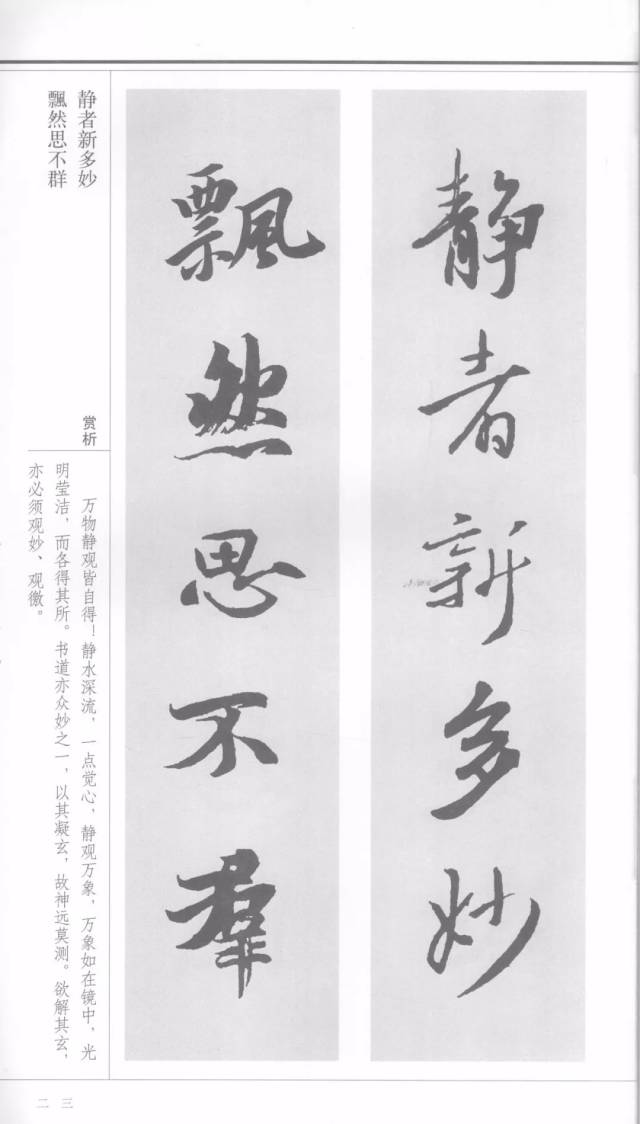 静者新多妙
飘然思不羣
静者新多妙
飘然思不群
赏析
万物静观皆自得！静水深流，一点觉心，静观万象，万象如在镜中，光
明莹洁，而各得其所。书道亦众妙之一，以其凝玄，故神远莫测。欲解其玄，
亦必须观妙、观徼。
二三